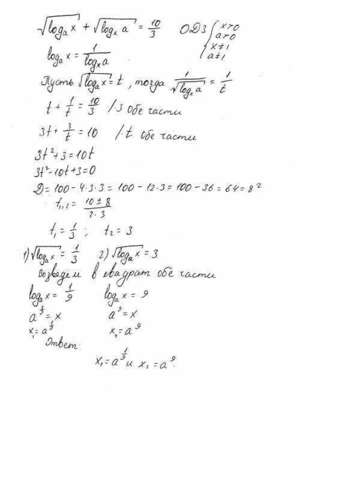 √logₐx + √logₓa = 10/3 ОДЗ { x>0 a>0 x≠1 a≠1
logₐx = 1/logₓa
Пусть √logₐx = t, тогда 1/√logₓa = 1/t
t + 1/t = 10/3 /·3 обе части
3t + 3/t = 10 /·t обе части
3t²+3=10t
3t²-10t+3=0
D = 100 - 4·3·3 = 100 - 12·3 = 100 - 36 = 64 = 8²
t₁,₂ = (10 ± 8)/(2·3)
t₁ = 1/3 ; t₂ = 3
1) √logₐx = 1/3 2) √logₐx = 3
возведем в квадрат обе части
logₐx = 1/9 logₐx = 9
a^(1/9) = x a⁹ = x
x₁ = a^(1/9) x₂ = a⁹
Ответ:
x₁ = a^(1/9) и x₂ = a⁹.